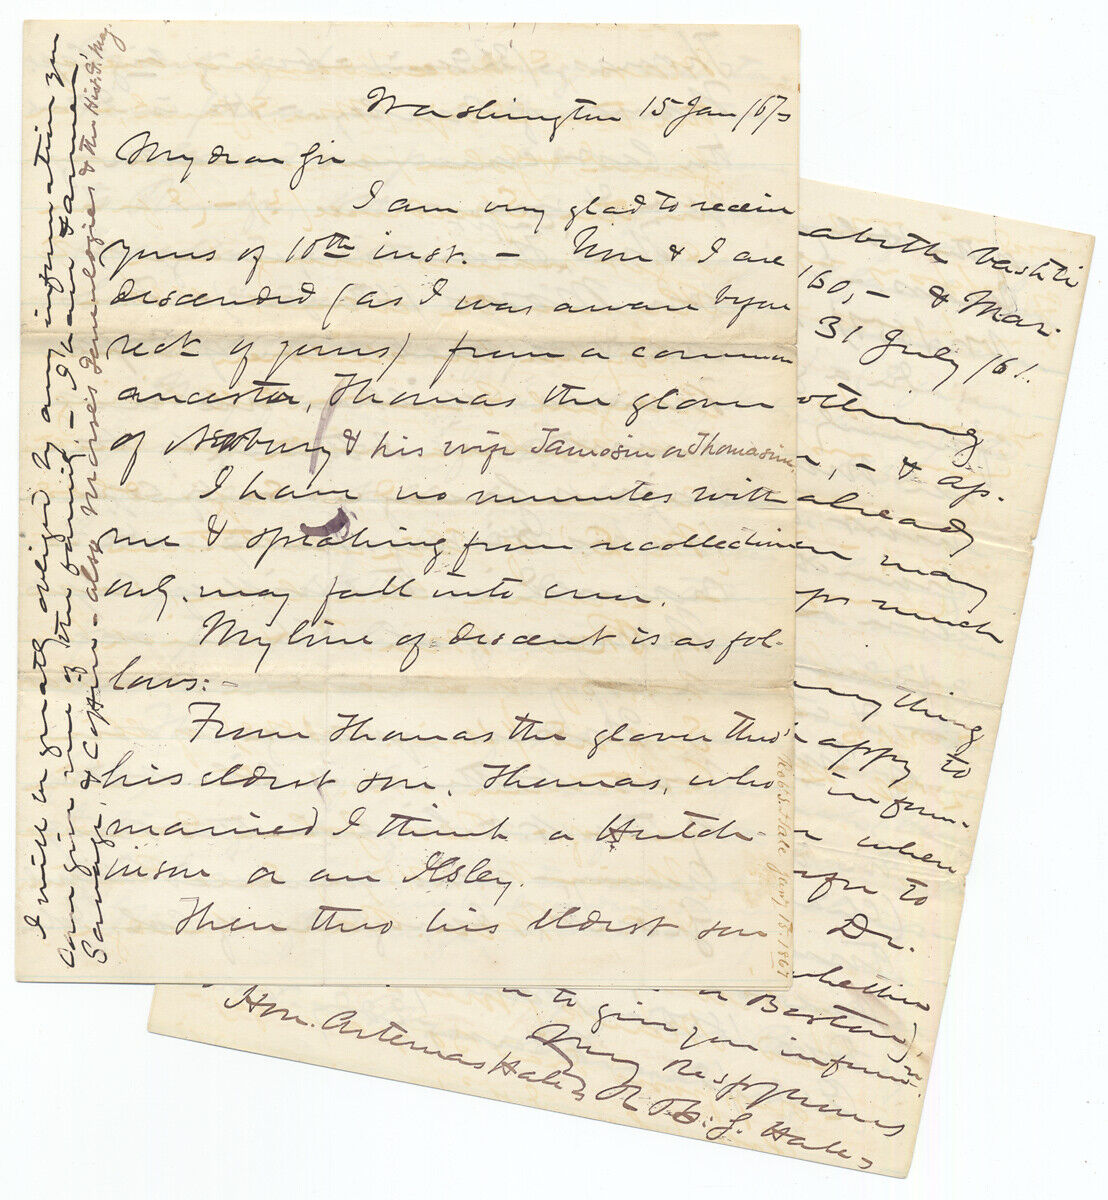 Washington 15 Jan /67
My dear Sir
I am very glad to receive
yours of 10th inst. - You & I are
descended (as I was aware before
rect of yours) from a common
ancestor, Thomas the glover
of Newbury & his wife Tamosin or Thomasine.
I have no minutes with
me & speaking from recollection
only, may fall into error.
My line of descent is as fol-
lows: -
From Thomas the glover thro'
his eldest son, Thomas, who
married I think a Hutch-
inson or an Ilsley.
Then thro his eldest son
I will be greatly obliged by any information you
can give me of the family. - I have Farmer &
Savage, & Coffin - also Morse's Genealogies & the Hist. Mag.
Robt. S. Hale Jan'y 15. 1867
abeth Vashti
/60, - & Mar.
31 July /61.
othing
, - & ap-
already
may
much
thing
happy to
inform-
when
to
Dr.
whether
in Boston)
to give you inform-
Very Respy yours
R. S. Hale
Hon. Artemas Hale